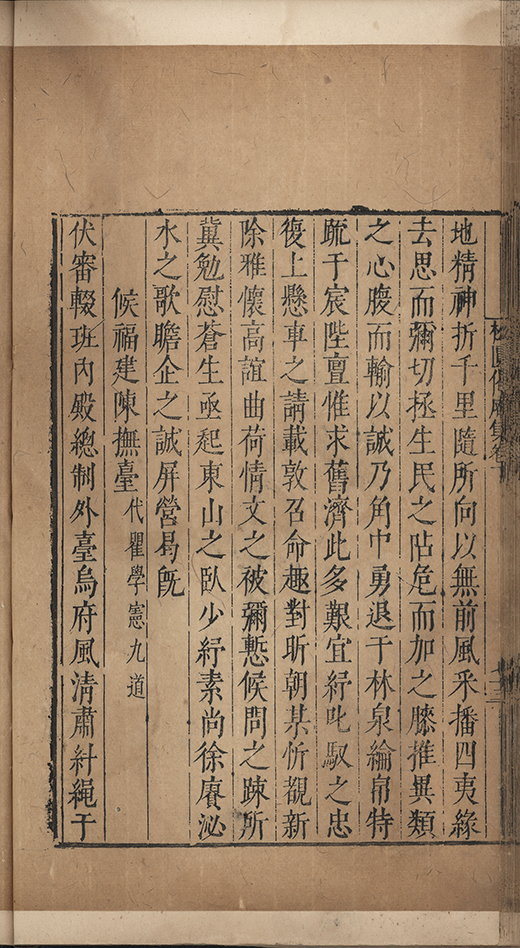 地精神折千里隨所向以無前風采播四夷緣
去思而彌切拯生民之阽危而加之膝推異類
之心腹而輸以誠乃角巾勇退于林泉綸帛特
䟽于宸陛亶惟求舊濟此多艱宜紓叱馭之忠
復上懸車之請載敦召命趣對昕朝某忻覩新
除雅懷高誼曲荷情文之被彌慙候問之疎所
冀勉慰蒼生亟起東山之臥少紓素尚徐賡泌
水之歌瞻企之誠屏營曷既
候福建陳撫臺代瞿學憲九道
伏審輟班內殿總制外臺烏府風清肅糾繩于